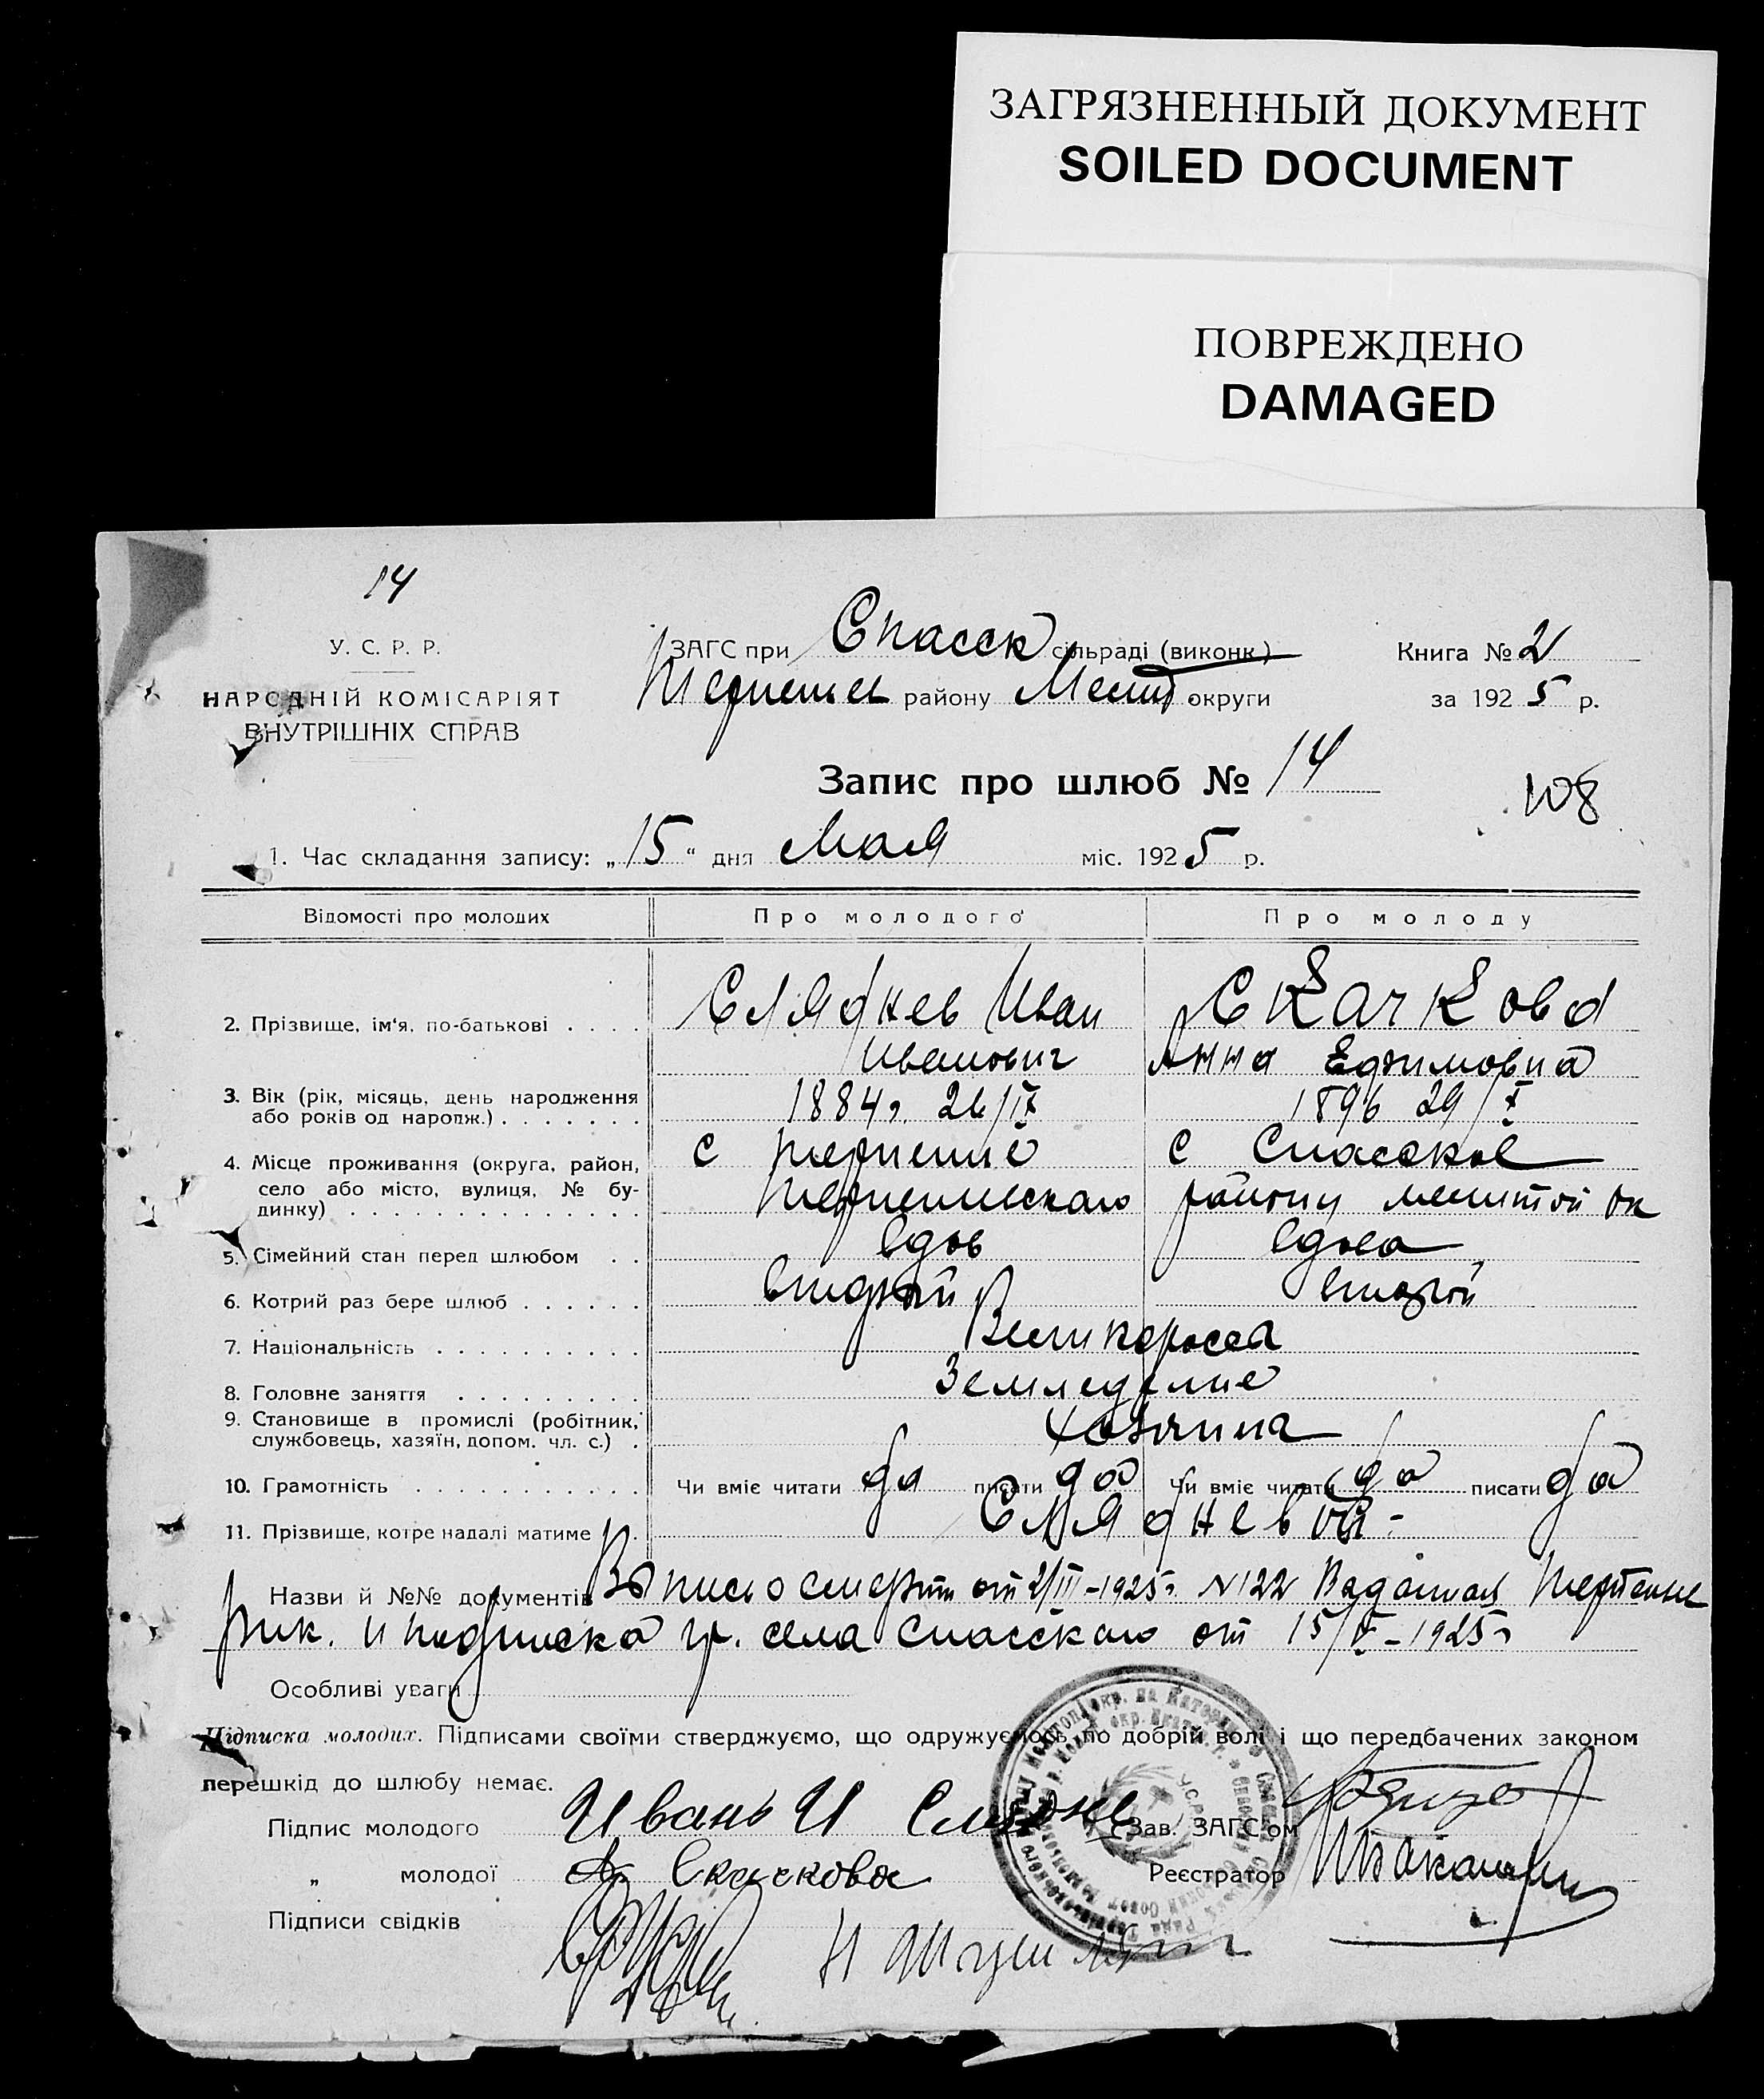 ЗАГРЯЗНЕННЫЙ ДОКУМЕНТ
SOILED DOCUMENT
ПОВРЕЖДЕНО
DAMAGED
14
У. С. Р. Р.
НАРОДНІЙ КОМІСАРІЯТ
ВНУТРІШНІХ СПРАВ
ЗАГС при Спасск сільраді (виконк)
району Мелит округи
Книга № 2
за 1925 р.
Запис про шлюб № 14
108
1. Час складання запису: „15" дня Мая міс. 1925 р.
Відомості про молодих Про молодого Про молоду
2. Прізвище, ім'я, по-батькові . . . . Сляднев Иван Скачкова
Иванович Анна Ефимовна
3. Вік (рік, місяць, день народження
або років од народж.) . . . . . . . 1884г. 26/IX 1896 29/X
4. Місце проживання (округа, район, с Терпение с Спаское
село або місто, вулиця, № бу-
динку) . . . . . . . . . . . . . . Терпеньевскаго району мелитой ок
5. Сімейний стан перед шлюбом . . вдов вдова
6. Котрий раз бере шлюб . . . . . . второй второй
7. Національність . . . . . . . . . . Великоросса
8. Головне заняття . . . . . . . . . Земледелие
9. Становище в промислі (робітник,
службовець, хазяїн, допом. чл. с.) . Хозяина
10. Грамотність . . . . . . . . . . . Чи вміє читати да писати да Чи вміє читати да писати да
11. Прізвище, котре надалі матиме . Сляднев
Назви й №№ документів о смерти от 2/III-1925г. №122
рик. и подписка гр. села Спасскаго от 15/V-1925г
Особливі уваги
Підписка молодих. Підписами своїми стверджуємо, що одружуємось по добрій волі і що передбачених законом
перешкід до шлюбу немає.
Підпис молодого Ивань И Зав. ЗАГС'ом
„ молодої Скачкова Реєстратор
Підписи свідків